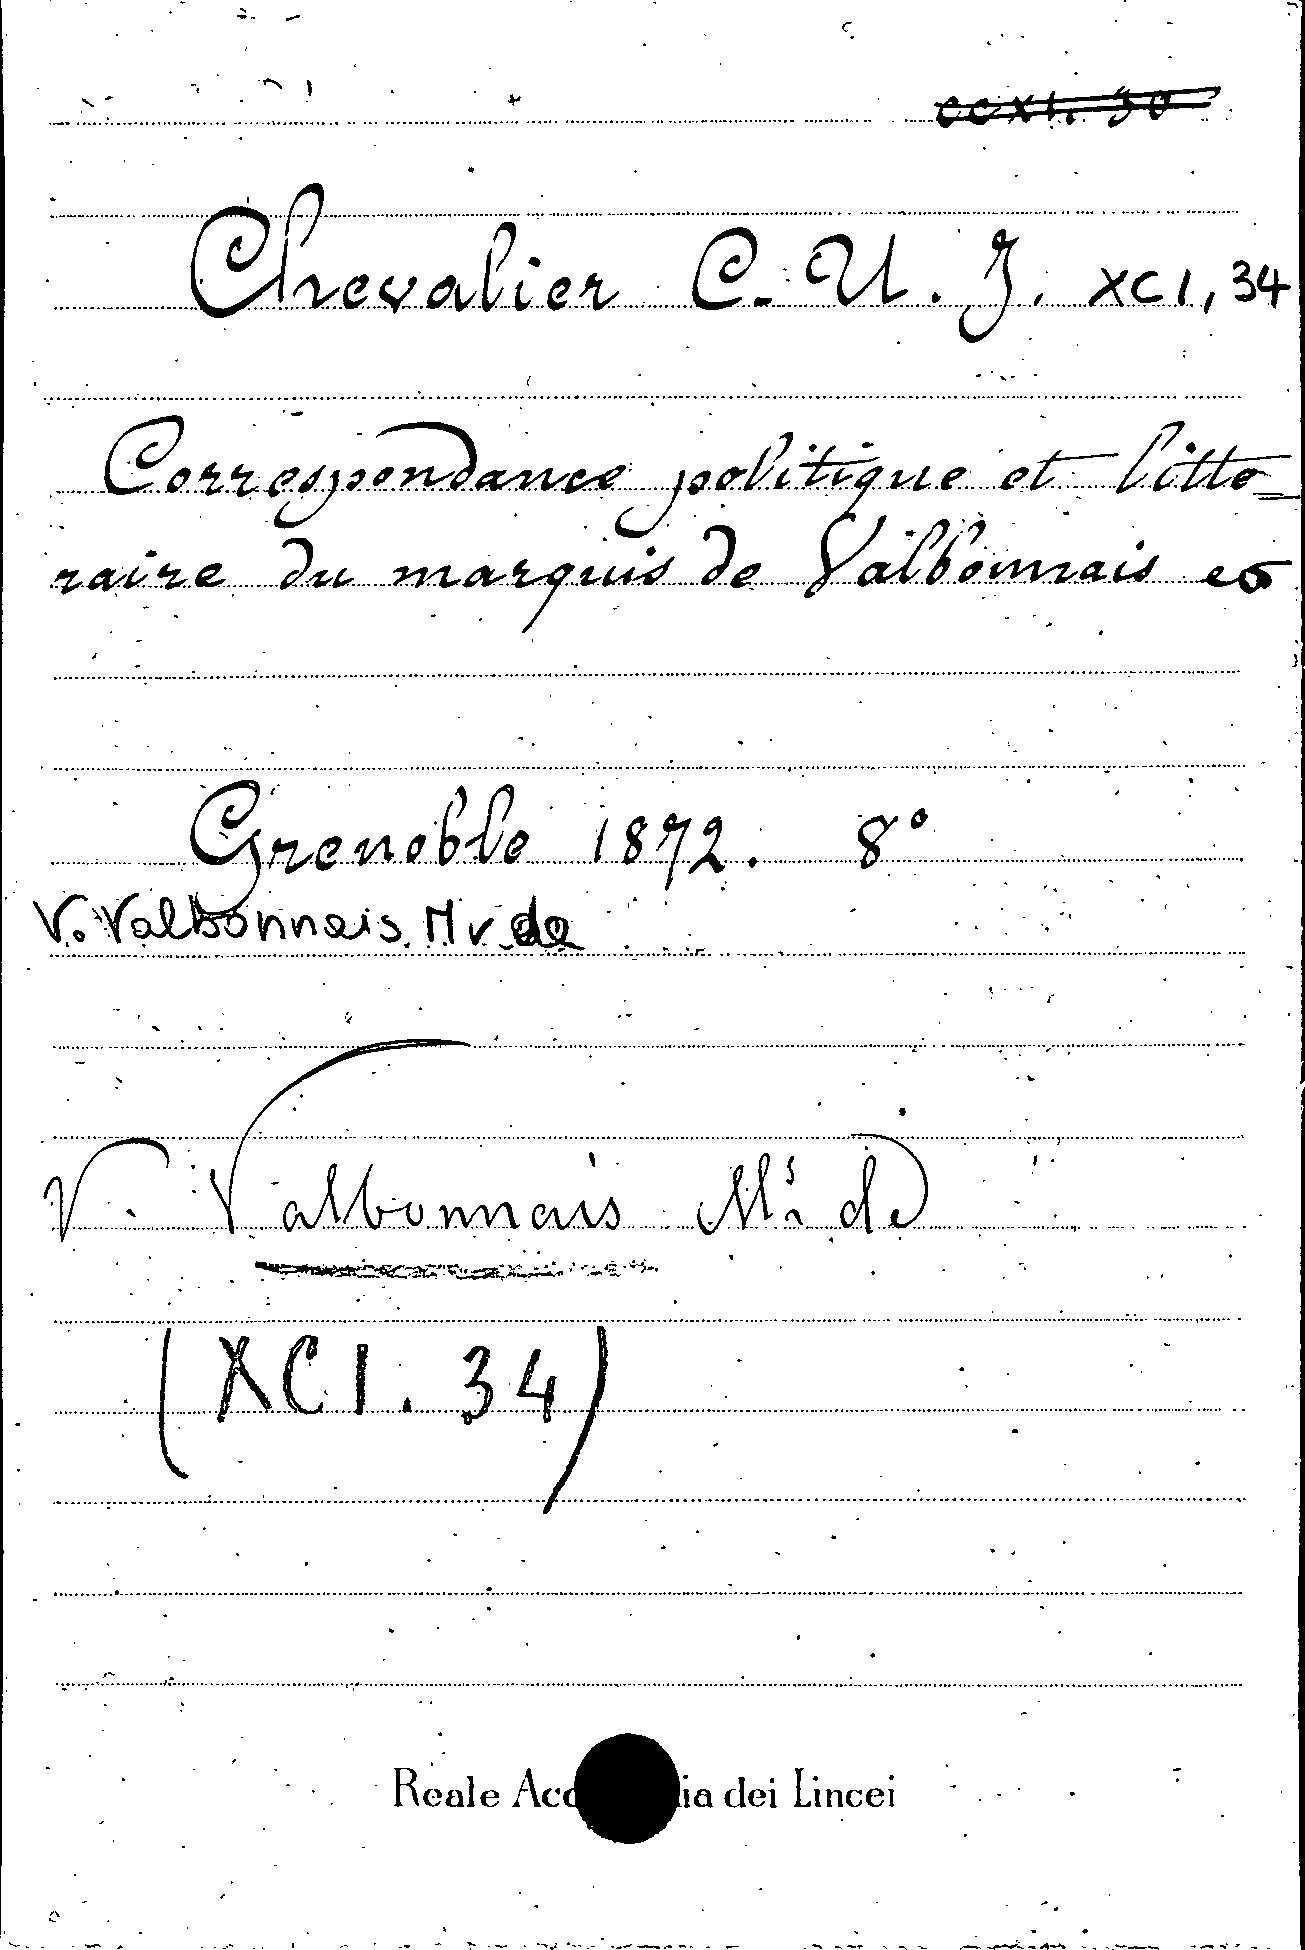 ccxi. 30
Chevalier C. U. J. XCI, 34
Correspondance politique et litte=
raire du marquis de Valbonnais
Grenoble 1872. 8°
V. Valbonnais Mr de
V. Valbonnais M.s de
(XCI. 34)
Reale Acc ia dei Lincei